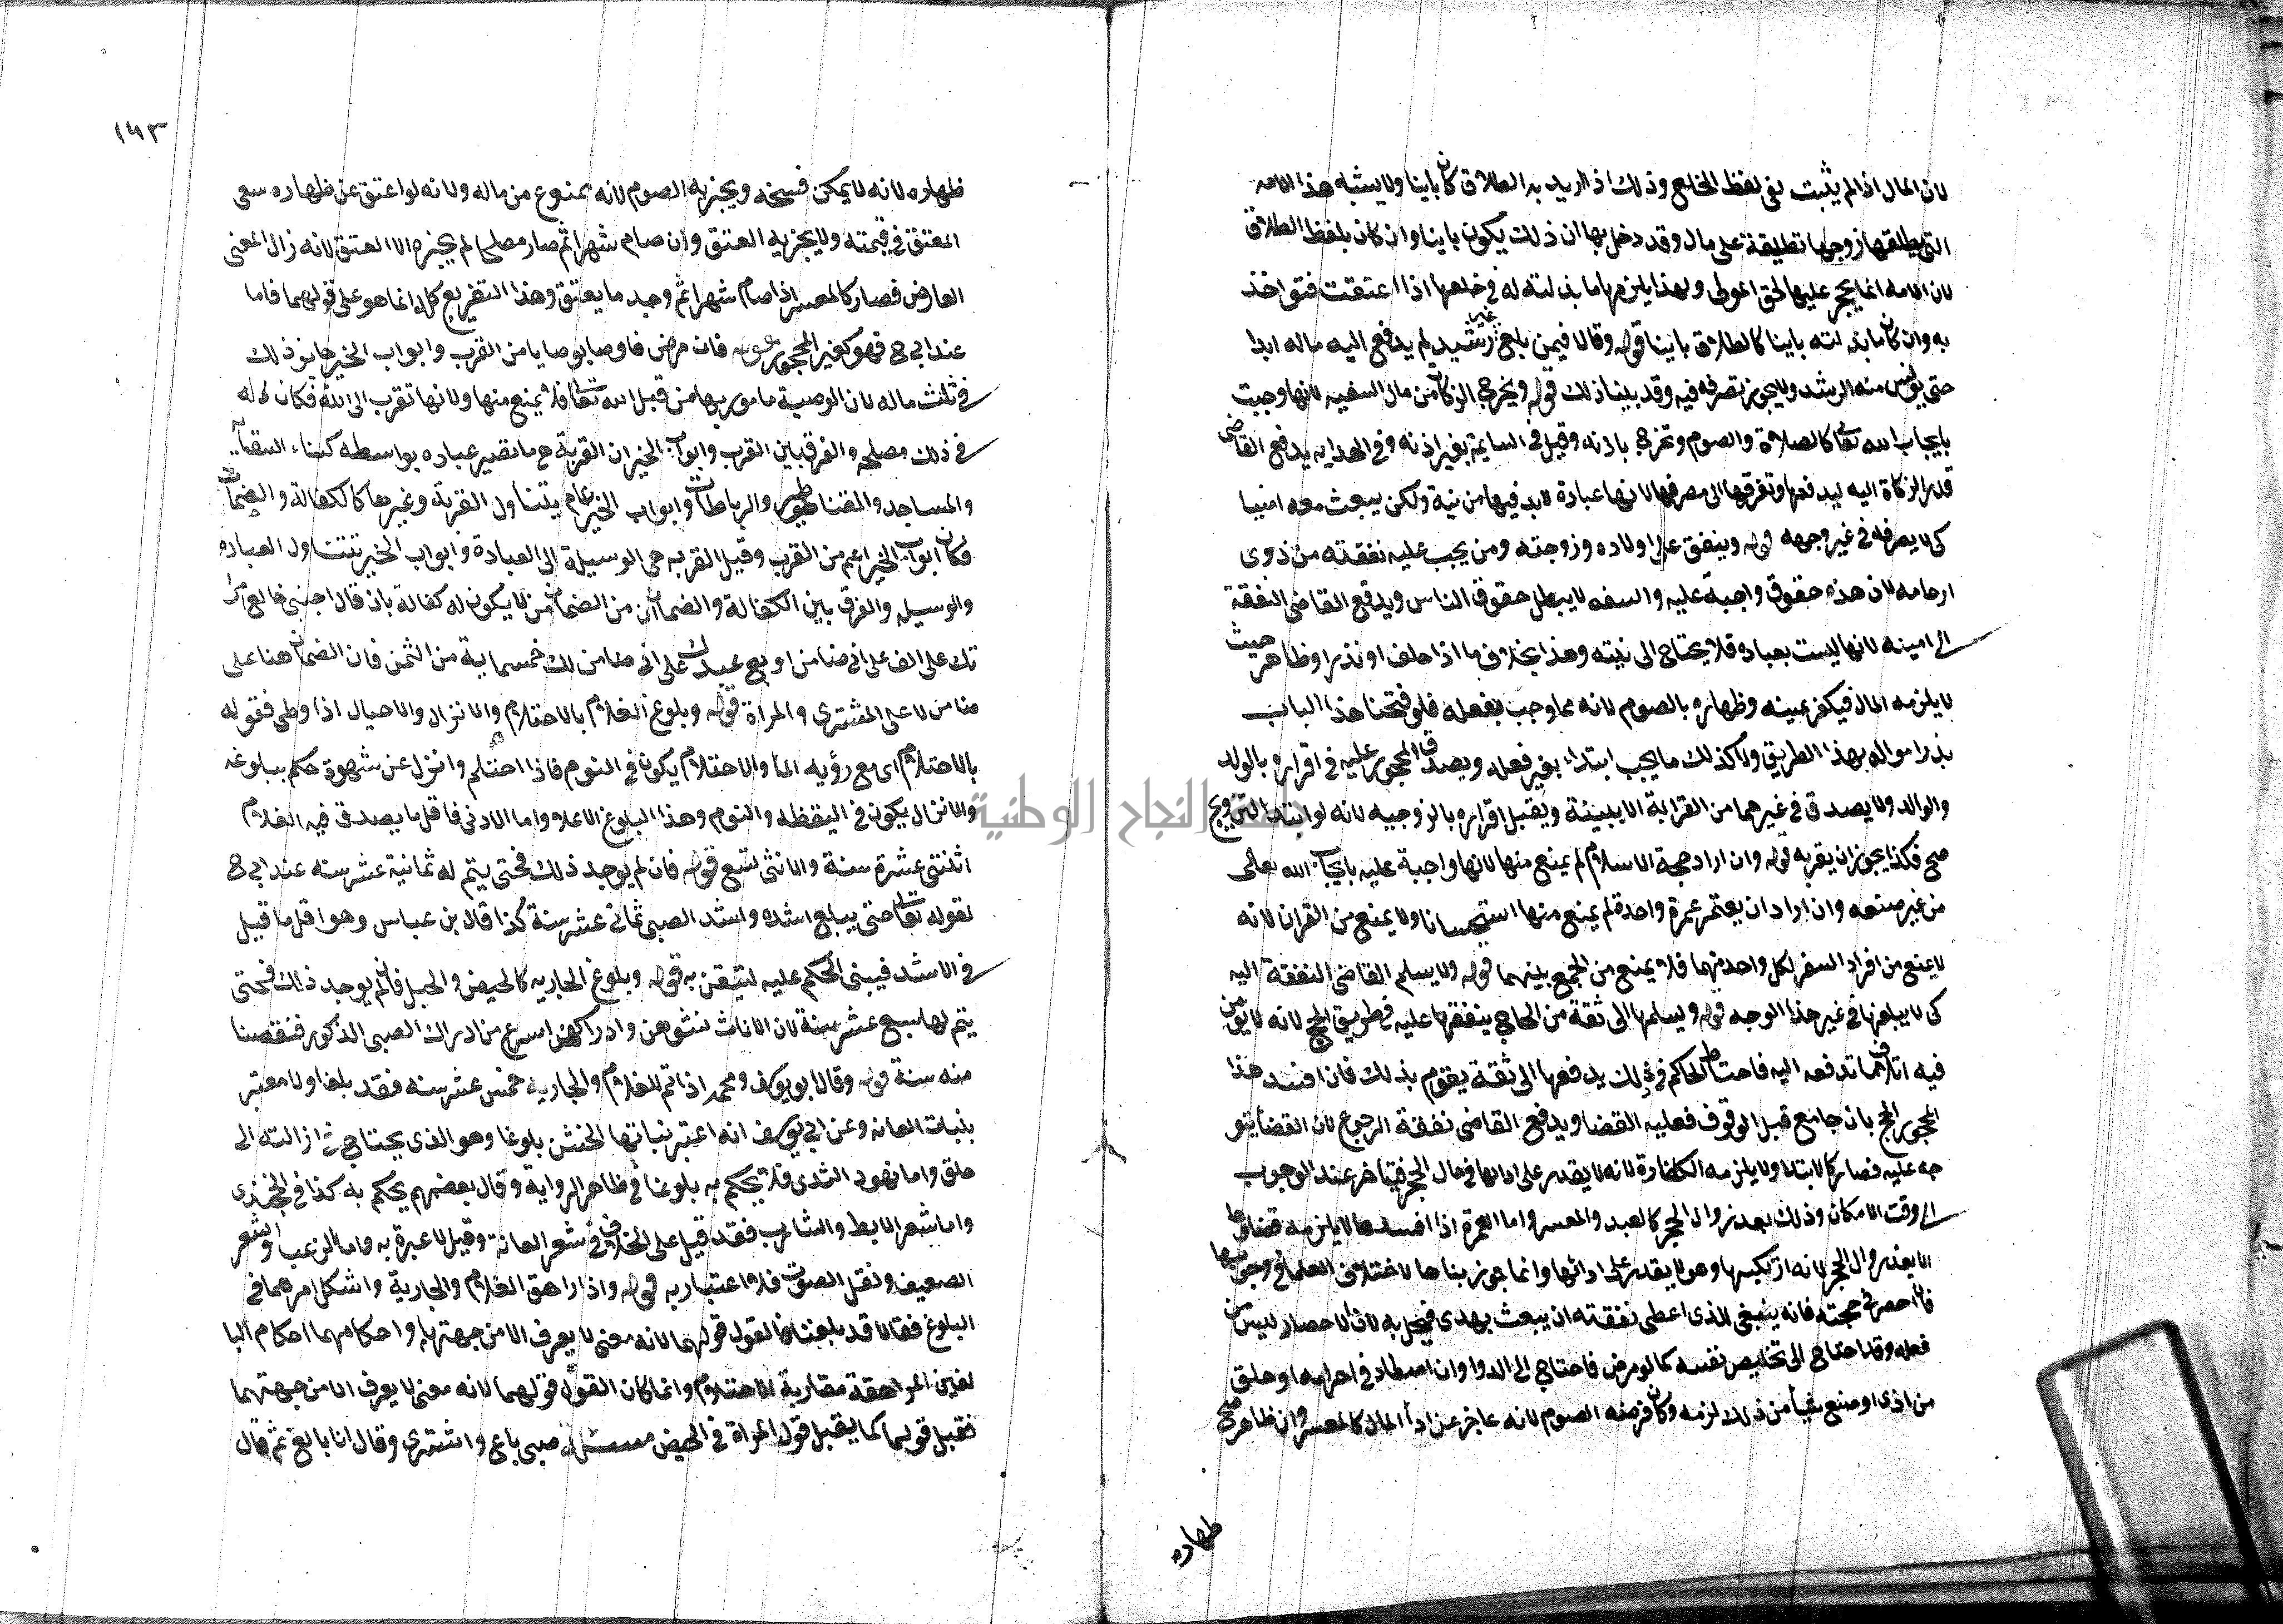 لان المال اذا لم يثبت بقي لفظ الخلع وذلك اذا اريد به الطلاق كان باينا ولا يشبه هذا الامه
التي يطلقها زوجها تطليقة على مال وقد دخل بها ان ذلك يكون باينا وان كان بلفظ الطلاق
لان الامه انما يحجر عليها لحق المولى ولهذا يلزمها ما بذلته له في خلعها اذا اعتقت فتواخذ
به وان كان ما بذلته باينا كالطلاق باينا قوله وقالا فيمن بلغ غير رشيد لم يدفع اليه ماله ابدا
حتى يونس منه الرشد ولا يجوز تصرفه فيه وقد بينا ذلك قوله ويخرج الزكاة من مال السفيه لانها وجبت
بايجاب الله تعالى كالصلاة والصوم وتخرج باذنه وقيل في السايمة بغير اذنه وفي الهدايه يدفع القاضي
قدر الزكاة اليه ليدفعها وتفرقها الى مصرفها لانها عبادة لابد فيها من نية ولكن يبعث معه امينا
كي لا يصرفه في غير وجهه قوله وينفق على اولاده وزوجته ومن يجب عليه نفقته من ذوي
ارحامه لان هذه حقوق واجبة عليه والسفه لا يبطل حقوق الناس ويدفع القاضي النفقة
الى امينه لانها ليست بعباده فلا يحتاج الى نيته وهذا بخلاف ما اذا حلف او نذر او ظاهر حيث
لا يلزمه المال فيكفر يمينه وظهاره بالصوم لانه مما وجب بفعله فلو فتحنا هذا الباب
بذر امواله بهذا الطريق ولا كذلك ما يجب ابتداء بغير فعله ويصدق المحجور عليه في اقراره بالولد
والوالد ولا يصدق في غيرهما من القرابة الا ببينة ويقبل اقراره بالزوجيه لانه لو ابتدا التزويج
صح فكذا يجوز ان يقر به قوله وان اراد حجة الاسلام لم يمنع منها لانها واجبة عليه بايجاب الله تعالى
من غير صنعه وان اراد ان يعتمر عمرة واحدة لم يمنع منها استحسانا ولا يمنع من القران لانه
لا يمنع من افراد السفر لكل واحد منهما فلا يمنع من الجمع بينهما قوله ولا يسلم القاضي النفقة اليه
كي لا يبلغها في غير هذا الوجه قوله ويسلمها الى ثقة من الحاج ينفقها عليه في طريق الحج لانه لا يومن
فيه اتلاف ما تدفعه اليه فاحتاط الحاكم في ذلك يدفعها الى ثقة يقوم بذلك فان افسد هذا
المحجور الحج بان جامع قبل الوقوف فعليه القضا ويدفع القاضي نفقة الرجوع لان القضا يتو
جه عليه فصار كالابتدا ولا يلزمه الكفارة لانه لا يقدر على ادائها في حال الحجر فيتاخر عند الوجوب
الى وقت الامكان وذلك بعد زوال الحجر كالعبد والمعسر واما العمرة اذا افسدها لا يلزمه قضاوها
الا بعد زوال الحجر لانه ارتكبها وهو لا يقدر على ادائها وانما جوزنا ها لاختلاف العلما في وجوبها
فان احصر في حجته فانه ينبغي للذي اعطى نفقته ان يبعث بهدي فيحل به لان الاحصار ليس من
فعله وقد احتاج الى تخليص نفسه كما لو مرض فاحتاج الى الدوا وان اصطاد في احرامه او حلق
من اذى او صنع شيأ من ذلك لزمه وكان فرضه الصوم لانه عاجز عن ادأ المال كالمعسر وان ظاهر صح
ظهاره
١٤٣
ظهاره لانه لا يمكن فسخه ويجزيه الصوم لانه ممنوع من ماله ولانه لو اعتق عن ظهاره سعى
المعتق في قيمته ولا يجزيه العتق وان صام شهرا ثم صار مصلحا لم يجزه الا العتق لانه زال المعنى
العارض فصار كالمعسر اذا صام شهرا ثم وجد ما يعتق وهذا التفريع كله انما هو على قولهما فاما
عند ابي ح فهو كغير المحجور قوله فان مرض فاوصا بوصايا من القرب وابواب الخير جاز ذلك
في ثلث ماله لان الوصية مامور بها من قبل الله تعالى فلا يمنع منها ولانها تقرب الى الله فكان له
في ذلك مصلحه والفرق بين القرب وابواب الخير ان القربة هي ما تصير عباده بواسطه كبناء السقايات
والمساجد والقناطير والرباطات وابواب الخير عام يتناول القربة وغيرها كالكفالة والضمان
فكان ابواب الخير اعم من القرب وقيل القربه هي الوسيلة الى العبادة وابواب الخير تتناول العباده
والوسيله والفرق بين الكفالة والضمان ان من الضمان من لا يكون له كفالة بان قال اجنبي خالع امرا
تك على الف على اني ضامن او بع عبدك على اني ضامن لك خمسماية من الثمن فان الضمان هنا على
ضامن لا على المشتري والمراة قوله وبلوغ الغلام بالاحتلام والانزال والاحبال اذا وطى فقوله
بالاحتلام اي مع رؤيه الما والاحتلام يكون في النوم فاذا احتلم وانزل عن شهوة حكم ببلوغه
والانزال يكون في اليقظه والنوم وهذا البلوغ الاعلا واما الادنى فاقل ما يصدق فيه الغلام
اثنتي عشرة سنة والانثى تسع قوله فان لم يوجد ذلك فحتى يتم له ثمانية عشر سنه عند ابي ح
لقوله تعالى حتى يبلغ اشده واشد الصبي ثماني عشر سنة كذا قال بن عباس وهو اقل ما قيل
في الاشد فيبنى الحكم عليه لتيقن به قوله وبلوغ الجاريه كالحيض والحبل فان لم يوجد ذلك فحتى
يتم لها سبع عشر سنة لان الاناث نشوهن وادراكهن اسرع من ادراك الصبي الذكور فنقصنا
منه سنة قوله وقال ابو يوسف ومحمد اذا تم للغلام والجارية خمس عشر سنه فقد بلغا ولا معتبر
بنبات العانه وعن ابي يوسف انه اعتبر نباتها الخشن بلوغا وهو الذي يحتاج في ازالته الى
حلق واما نهود الثدي فلا يحكم به بلوغا في ظاهر الرواية وقال بعضهم يحكم به كذا في الخجندي
واما شعر الابط والشارب فقد قيل على الخلاف في شعر العانة وقيل لا عبرة به واما الزغب والشعر
الضعيف ونقل الصوت فلا اعتبار به قوله واذا راهق الغلام والجارية واشكل امرهما في
البلوغ فقالا قد بلغنا فالقول قولهما لانه معنى لا يعرف الا من جهتهما واحكامهما احكام البا
لغين المراهقة مقاربة الاحتلام وانما كان القول قولهما لانه معنى لا يعرف الا من جهتهما
فقبل قولهما كما يقبل قول المراة في الحيض مسئلة صبي باع واشترى وقال انا بالغ ثم قال
جامعة النجاح الوطنية